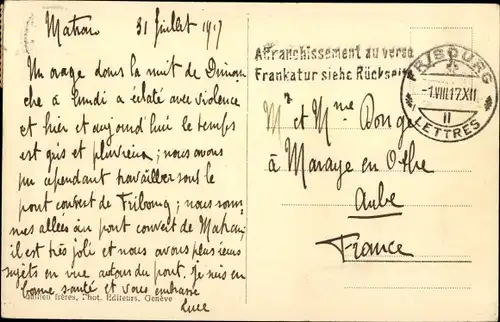 Matran 31 Juillet 1917
Un orage dans la nuit de Diman
che à Lundi a éclaté avec violence
et hier et aujourd'hui le temps
est gris et pluvieux; nous avons
pu cependant travailler sous le
pont couvert de Fribourg; nous som
mes allées au pont couvert de Matran;
il est très joli et nous avons plusieurs
sujets en vue autour du pont. Je suis en
bonne santé et vous embrasse
Luce
frères, Phot. Editeurs, Genève
Affranchissement au verso
Frankatur siehe Rückseite
FRIBOURG
-1.VIII.17.XII
II
LETTRES
Mr et Mme
à Maraye en Othe
Aube
France